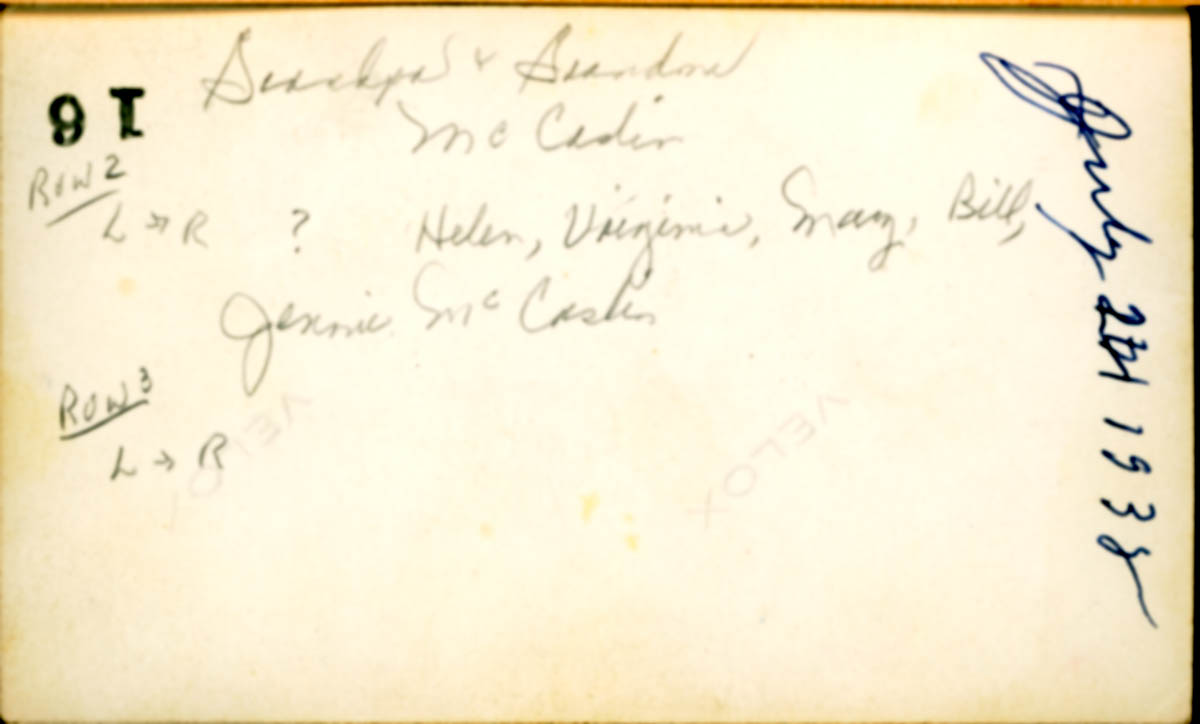 Grandpa & Grandma
Mc Caslin
16
Row 2
L → R ? Helen, Virginia, Mary, Bill,
Jennie Mc Caslin
Row 3
L → R
VELOX
VELOX
July 24 1938